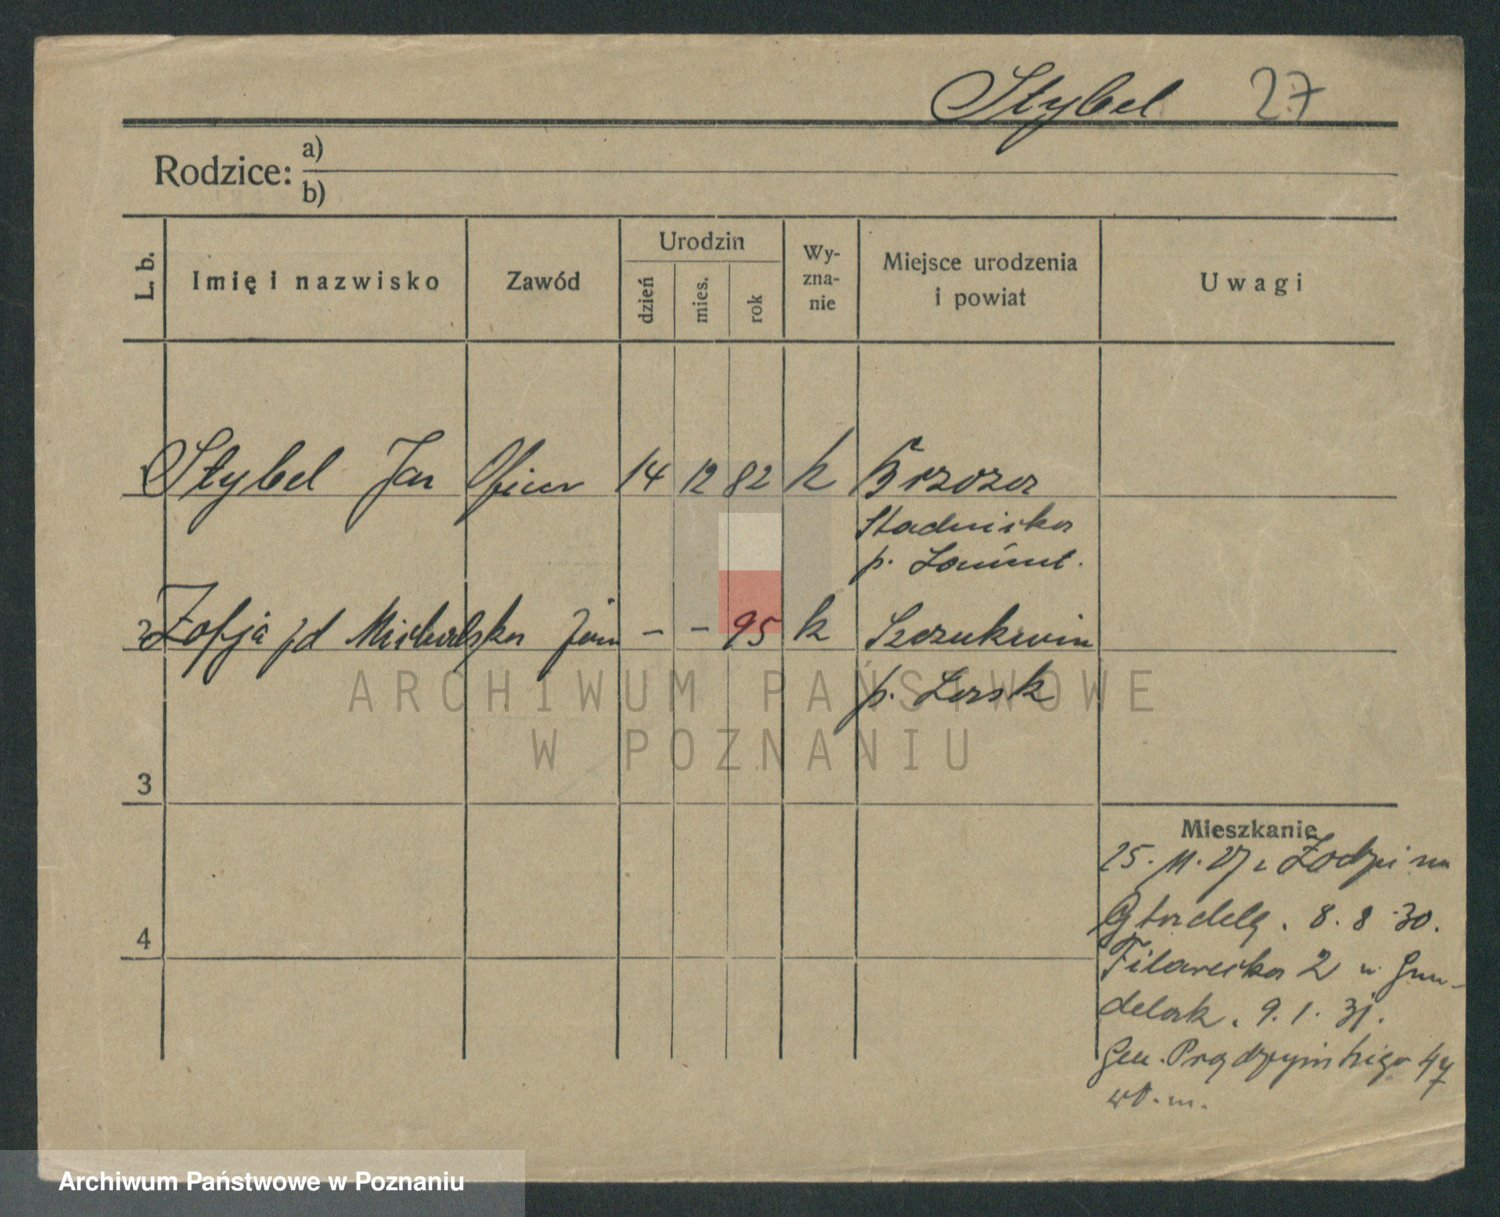 Stybel 27
Rodzice: a)
b)
L. b.
Imię i nazwisko
Zawód
Urodzin
dzień
mies.
rok
Wy-
zna-
nie
Miejsce urodzenia
i powiat
Uwagi
1 Stybel Jan Oficer 14 12 82 k Brzoza
Stadnicka
p. Łańcut.
2 Zofja żd Michalska żona – – 95 k Szczukwin
p. Łask
3
4
Mieszkanie
25. 11. 27 z Łodzi na
Cytadelę. 8. 8. 30.
Filarecka 2 u
9. 1. 31.
Gen. Prądzyńskiego 47
wł. m.
ARCHIWUM PAŃSTWOWE
W POZNANIU
Archiwum Państwowe w Poznaniu